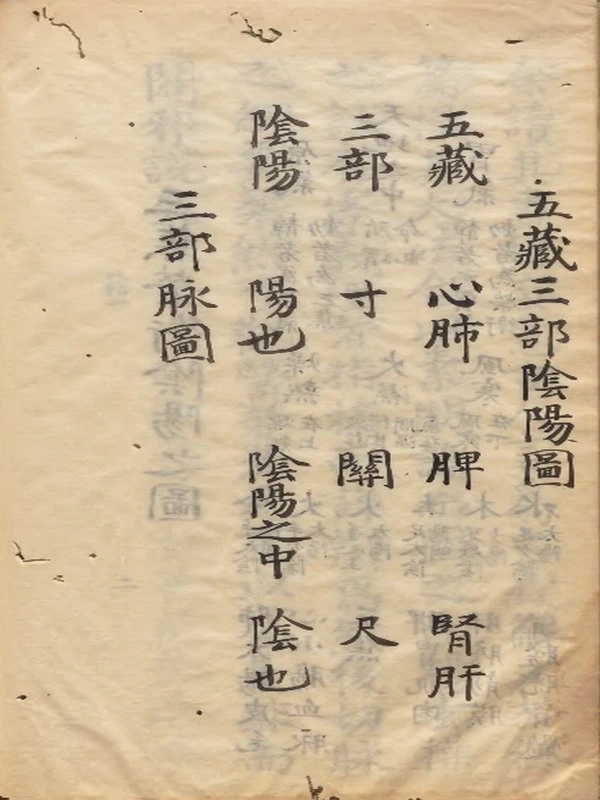 五藏三部陰陽圖
五藏 心肺 脾 腎肝
三部 寸 關 尺
陰陽 陽也 陰陽之中 陰也
三部脉圖